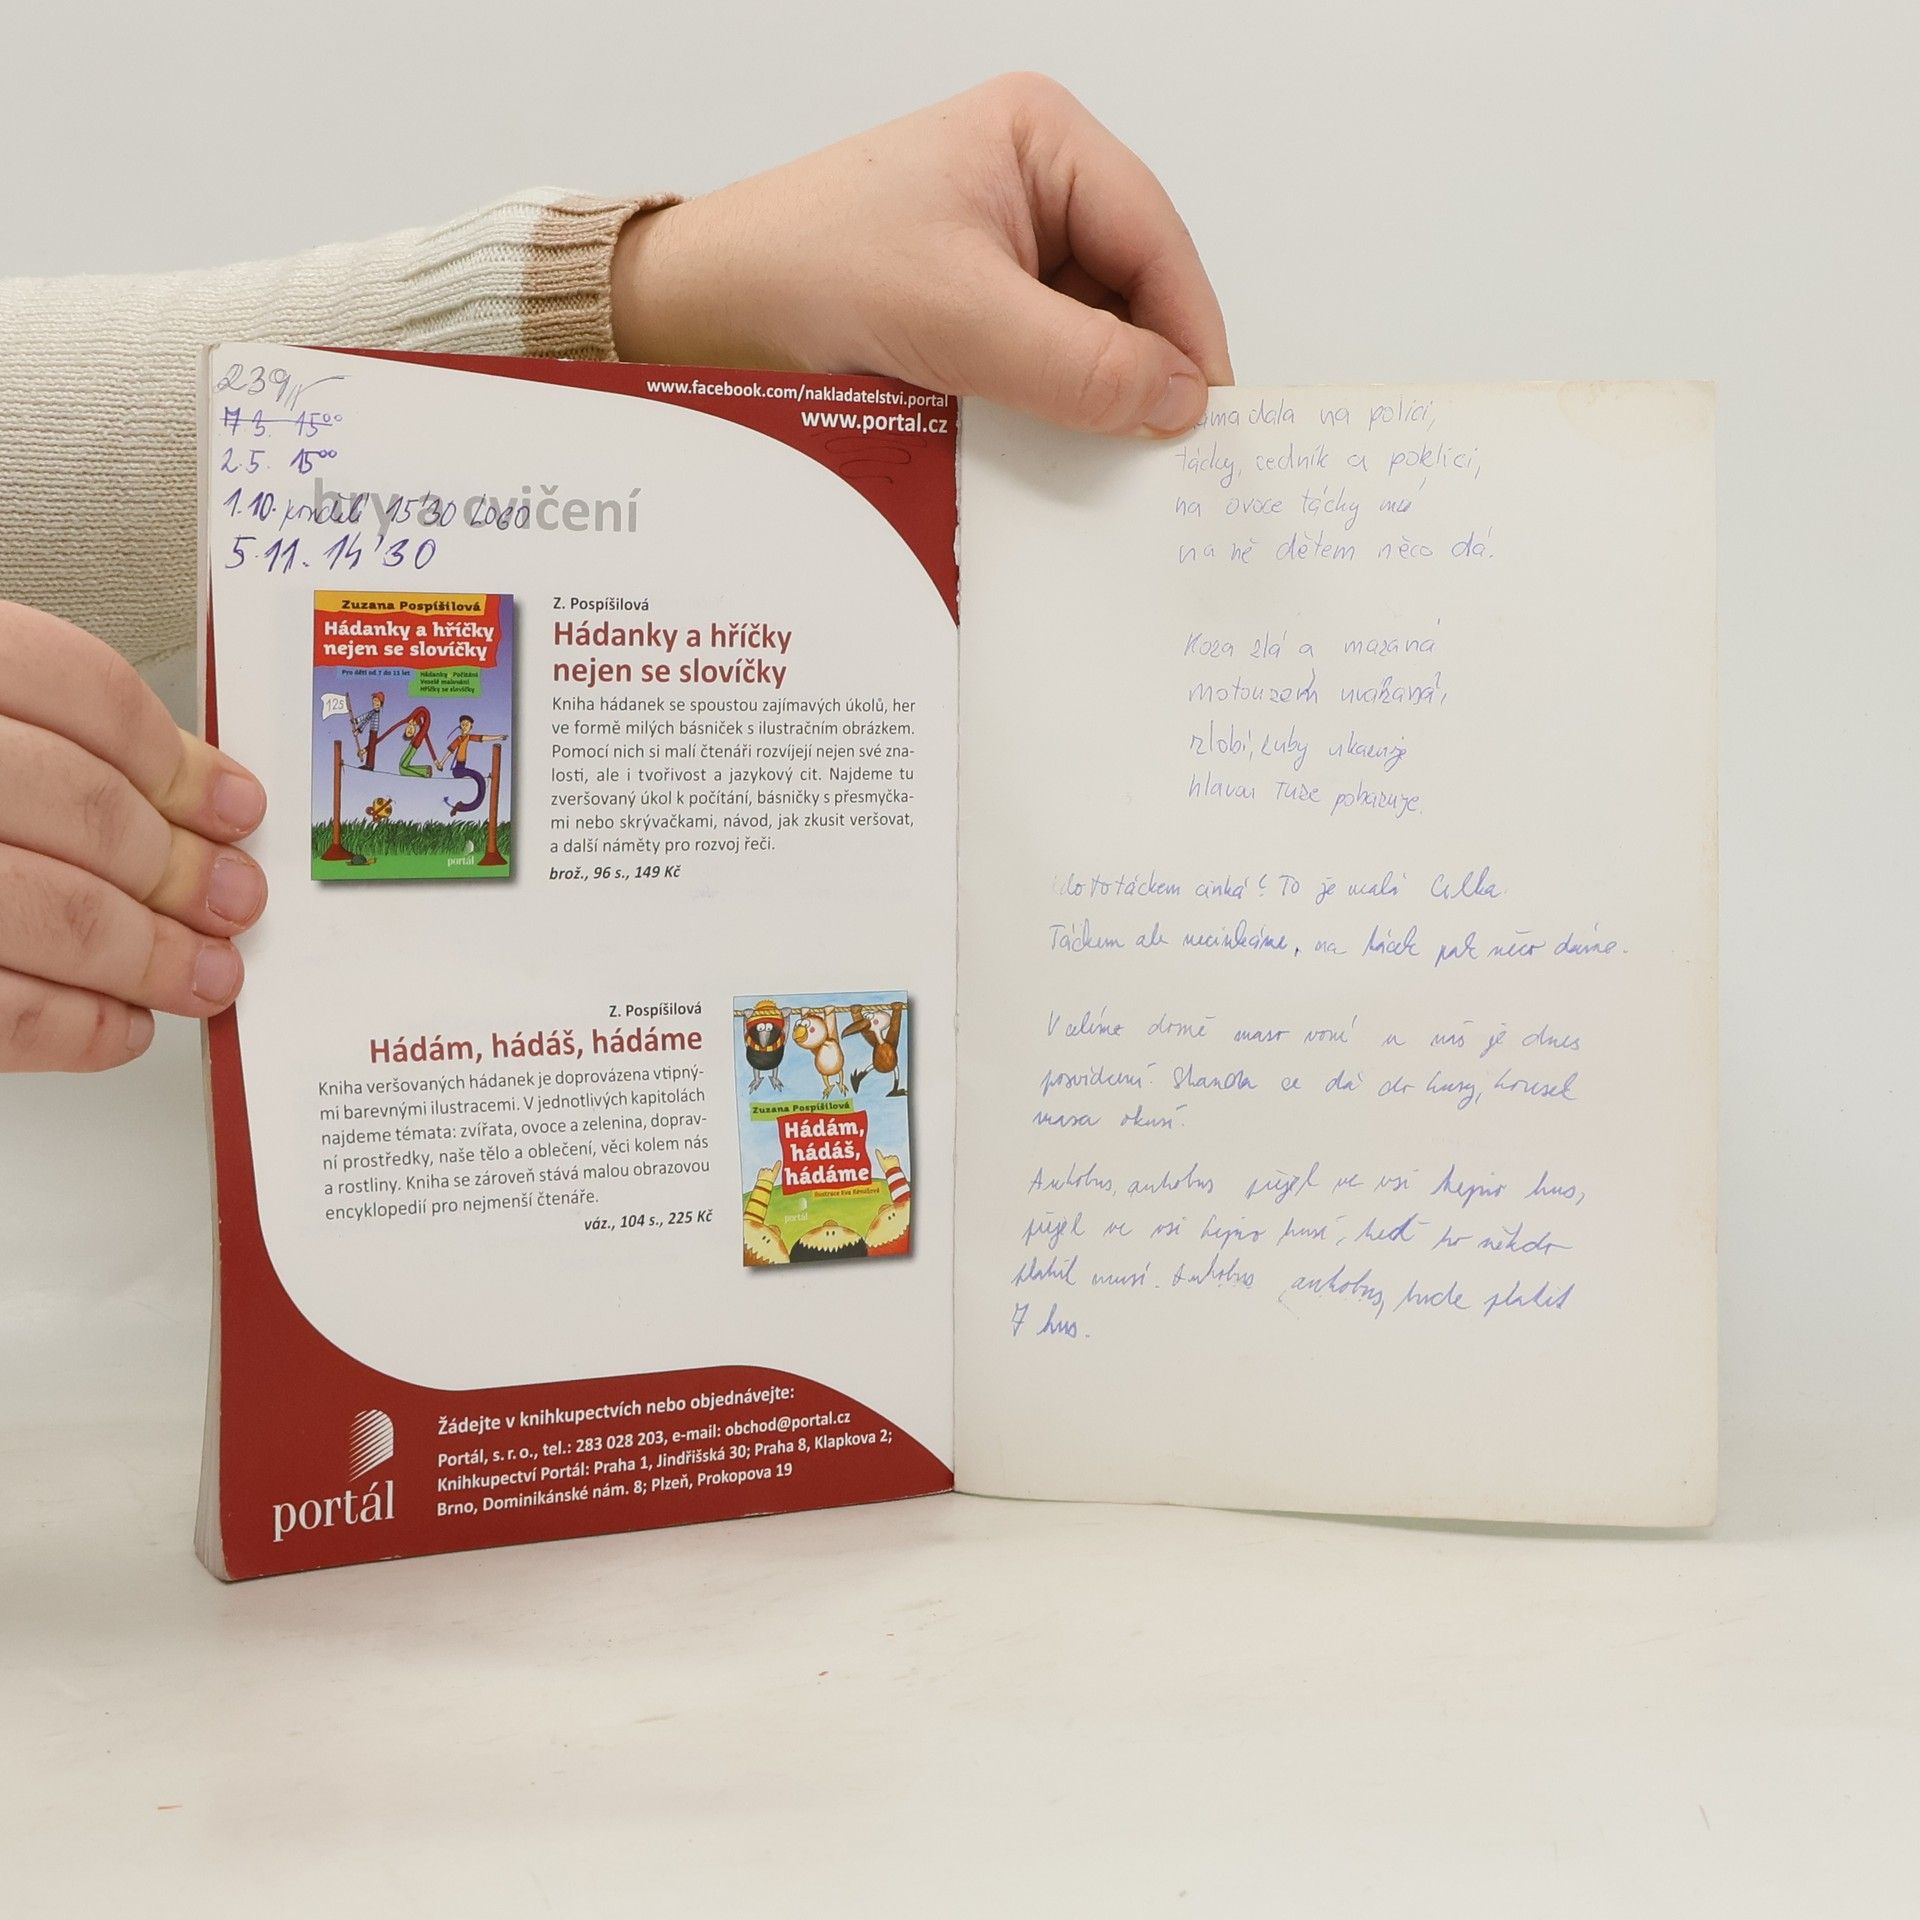 239
7 3. 15⁰⁰
2.5. 15⁰⁰
1.10. pondělí 15'30 LOGO
5.11. 14'30
www.facebook.com/nakladatelstvi.portal
www.portal.cz
hry a cvičení
Zuzana Pospíšilová
Hádanky a hříčky
nejen se slovíčky
Pro děti od 7 do 11 let
Hádanky Počítání
Veselé malování
Hříčky se slovíčky
125
portál
Z. Pospíšilová
Hádanky a hříčky
nejen se slovíčky
Kniha hádanek se spoustou zajímavých úkolů, her
ve formě milých básniček s ilustračním obrázkem.
Pomocí nich si malí čtenáři rozvíjejí nejen své zna-
losti, ale i tvořivost a jazykový cit. Najdeme tu
zveršovaný úkol k počítání, básničky s přesmyčka-
mi nebo skrývačkami, návod, jak zkusit veršovat,
a další náměty pro rozvoj řeči.
brož., 96 s., 149 Kč
Z. Pospíšilová
Hádám, hádáš, hádáme
Kniha veršovaných hádanek je doprovázena vtipný-
mi barevnými ilustracemi. V jednotlivých kapitolách
najdeme témata: zvířata, ovoce a zelenina, doprav-
ní prostředky, naše tělo a oblečení, věci kolem nás
a rostliny. Kniha se zároveň stává malou obrazovou
encyklopedií pro nejmenší čtenáře.
váz., 104 s., 225 Kč
Zuzana Pospíšilová
Hádám,
hádáš,
hádáme
portál
portál
Žádejte v knihkupectvích nebo objednávejte:
Portál, s. r. o., tel.: 283 028 203, e-mail: obchod@portal.cz
Knihkupectví Portál: Praha 1, Jindřišská 30; Praha 8, Klapkova 2;
Brno, Dominikánské nám. 8; Plzeň, Prokopova 19
ama dala na polici,
tácky, cedník a poklici,
na ovoce tácky má
na ně dětem něco dá.
Koza zlá a mazaná
motouzem uvázaná,
zlobí, zuby ukazuje
hlavou tuze pohazuje.
do to táckem cinká? To je malá Cilka.
Táckem ale necinkáme, na tácek pak něco dáme.
V celém domě maso voní u nás je dnes
posvícení. Standa se dá do husy, kousek
masa okusí.
Autobus, autobus přejel ve vsi tejno hus,
přejel ve vsi tejno husí, teď to někdo
platit musí. Autobus autobus, bude platit
7 hus.